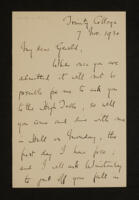 Trinity College
7 Nov. 1930
My dear Gerald,
When once you are
admitted it will not be
possible for me to ask you
to the High Table, so will
you come and dine with me
in Hall on Monday, the
first day I have free,
and I will ask Winstanley
to put off your